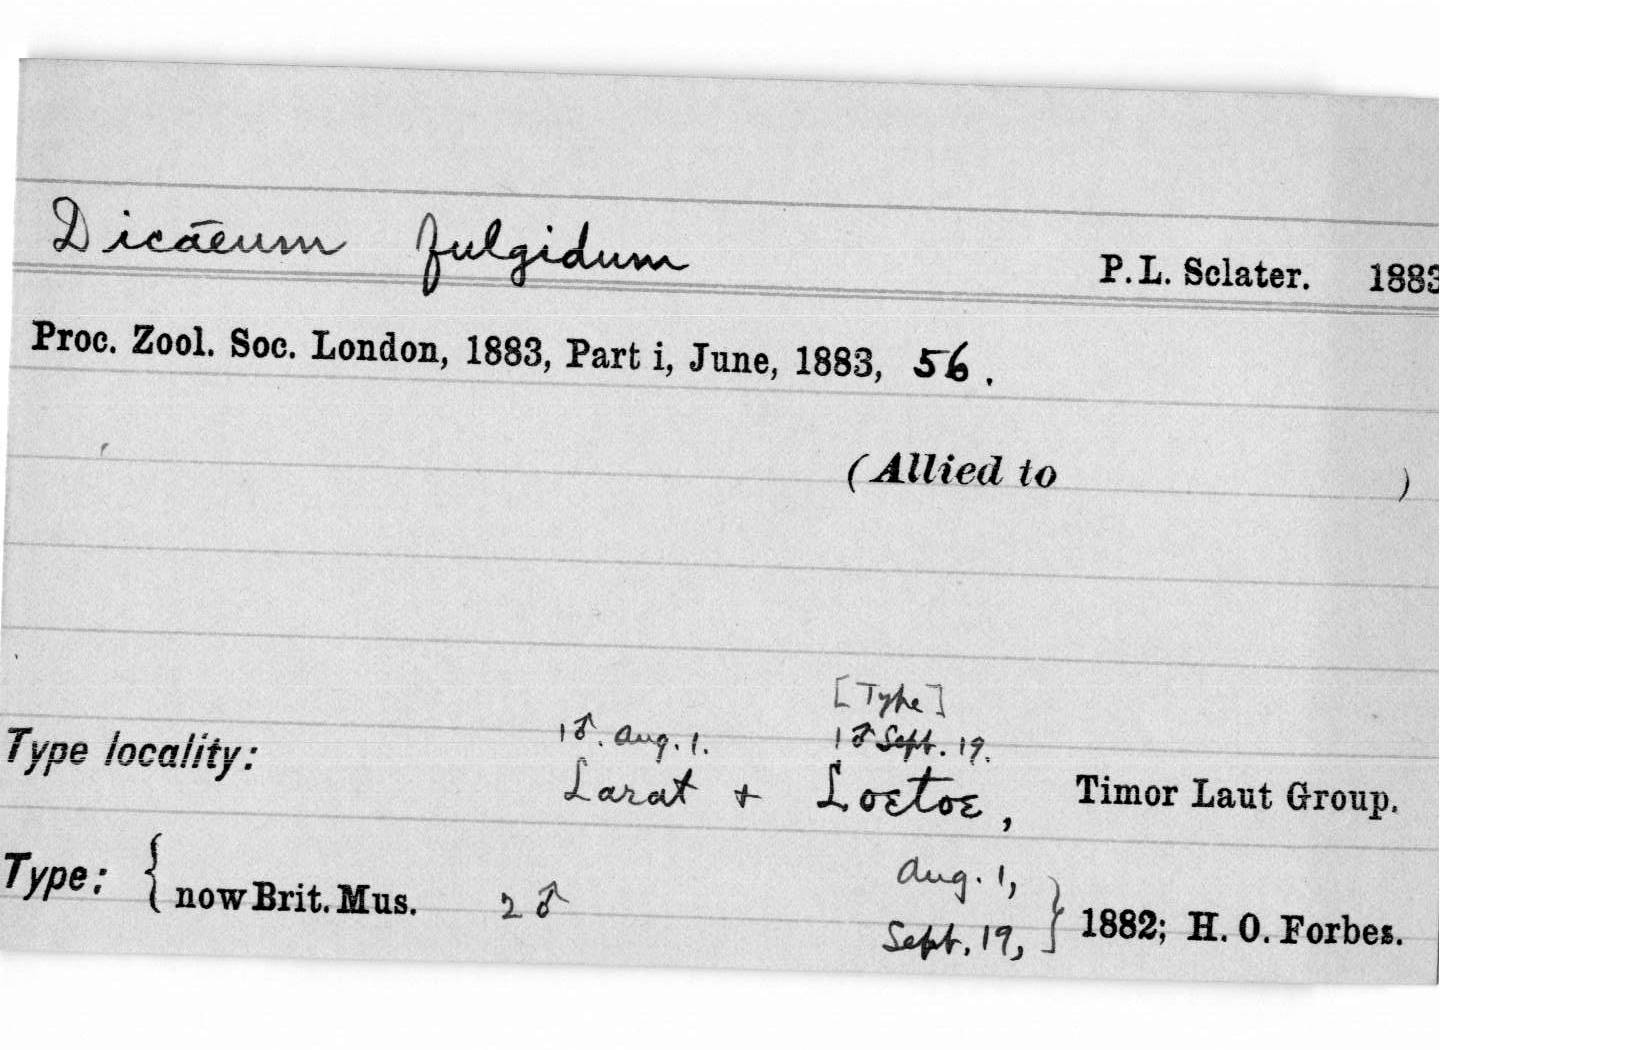 Dicaeum fulgidum P.L. Sclater. 1883
Proc. Zool. Soc. London, 1883, Part i, June, 1883, 56.
(Allied to )
[Type]
1♂. Aug. 1. 1♂ Sept. 19.
Type locality: Larat + Loetoe, Timor Laut Group.
Type: { now Brit. Mus. 2♂ Aug. 1, Sept. 19, } 1882; H. O. Forbes.